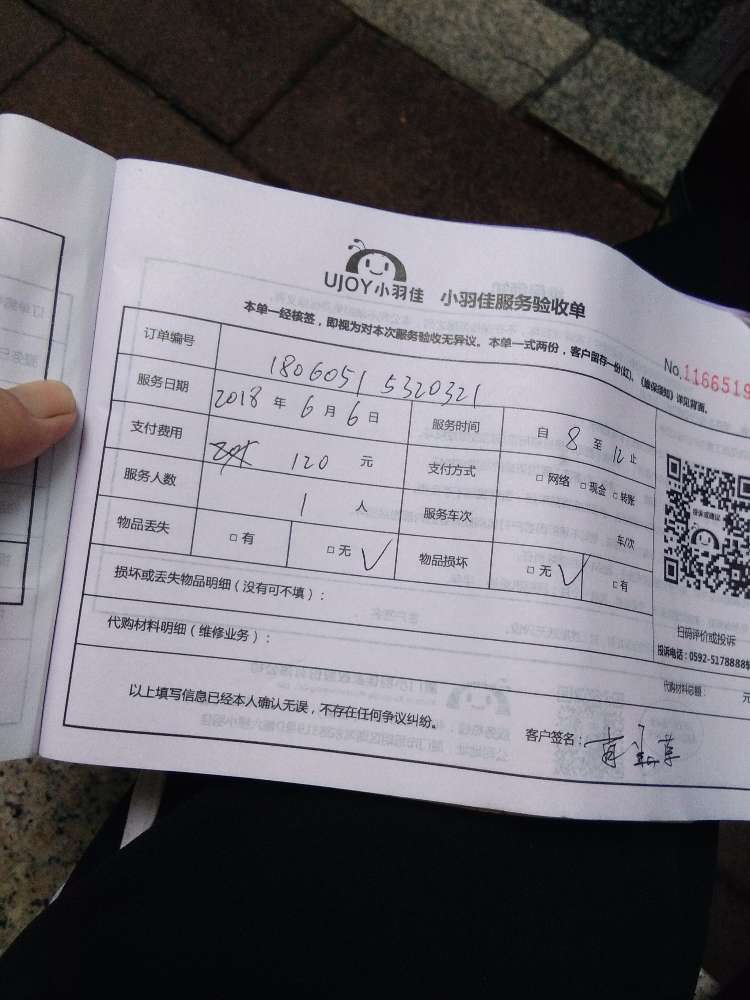 UJOY小羽佳 小羽佳服务验收单
本单一经核签，即视为对本次服务验收无异议。本单一式两份，客户留存一份(红)、《维保须知》详见背面。
No.1166519
订单编号 1806051 5320321
服务日期 2018 年 6 月 6 日 服务时间 自 8 至 12 止
支付费用 120 元 支付方式 □ 网络 □ 现金 □ 转账
服务人数 1 人 服务车次 车/次
物品丢失 □ 有 □ 无 √ 物品损坏 □ 无 √ □ 有
损坏或丢失物品明细（没有可不填）：
扫码评价或投诉
投诉电话：0592-5178888
代购材料明细（维修业务）：
代购材料总额： 元
以上填写信息已经本人确认无误，不存在任何争议纠纷。
客户签名：